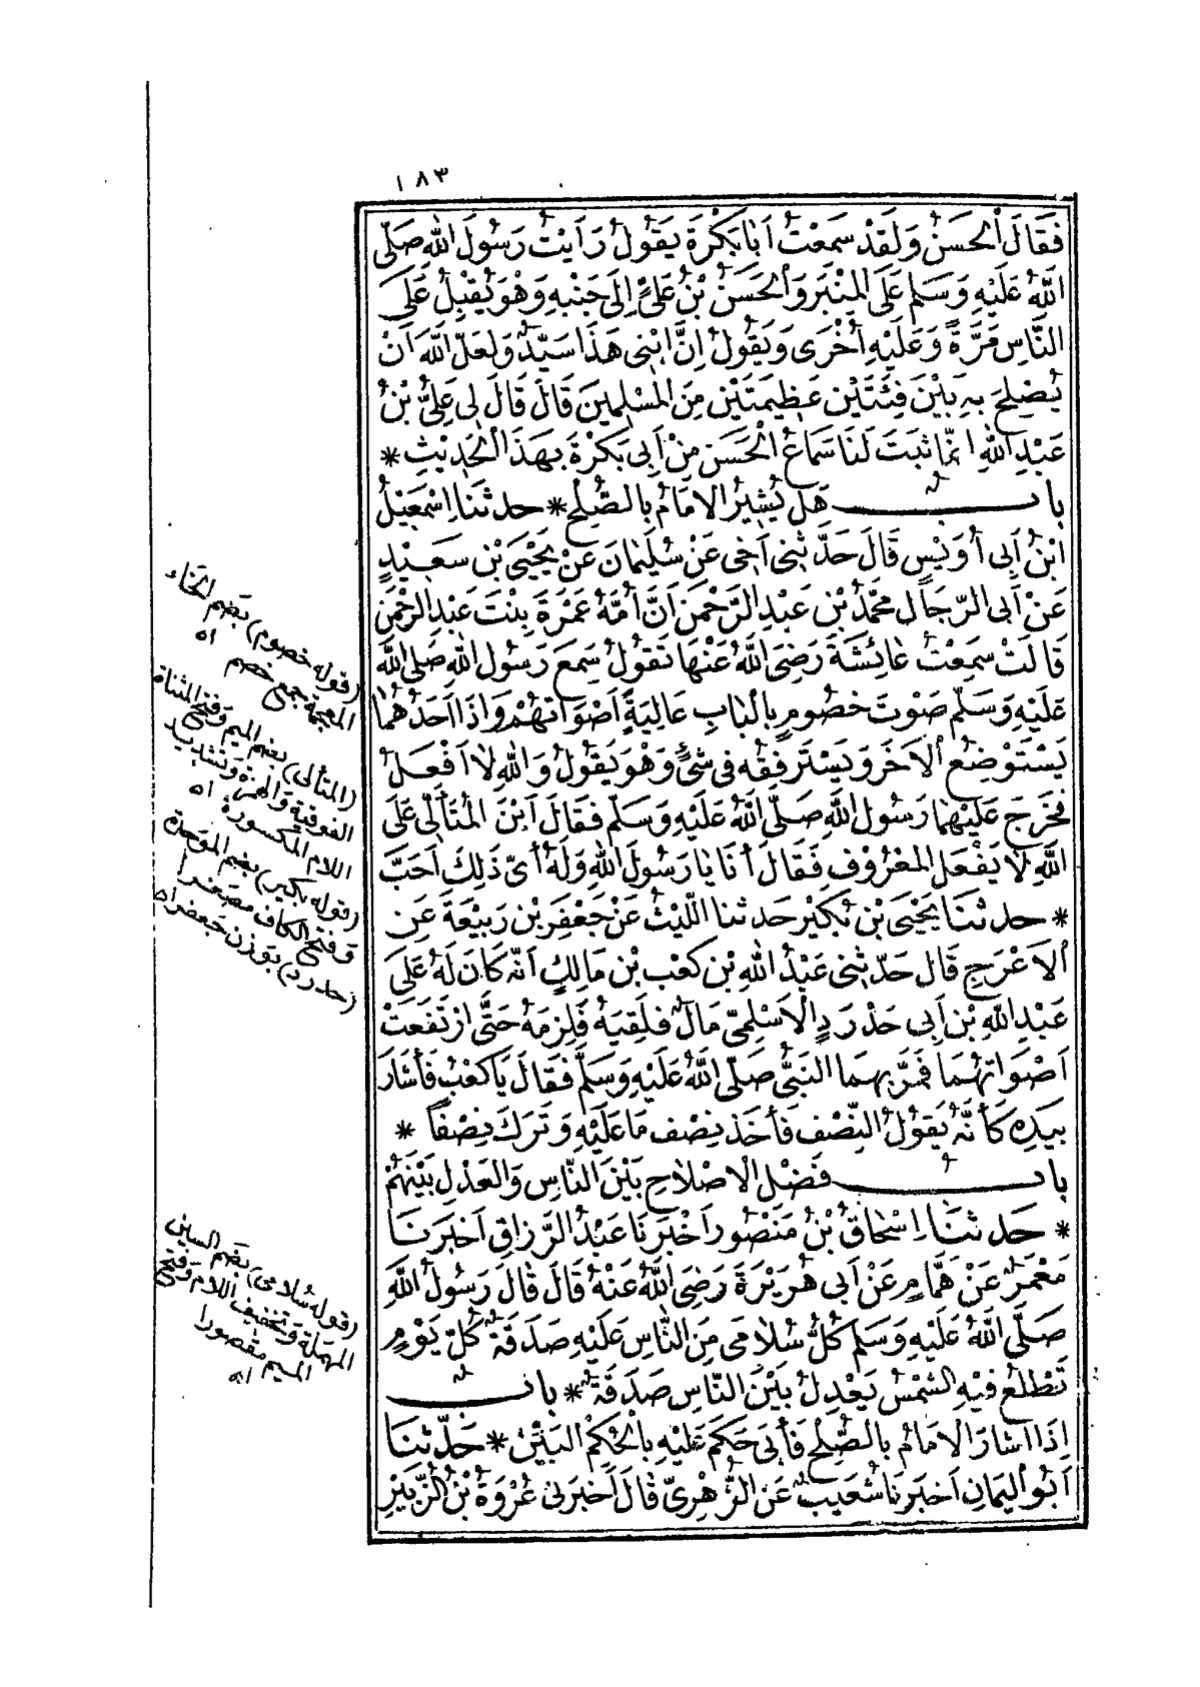 ١٨٣
فَقَالَ الْحَسَنُ وَلَقَدْ سَمِعْتُ أَبَا بَكْرَةَ يَقُولُ رَأَيْتُ رَسُولَ اللهِ صَلَّى
اللهُ عَلَيْهِ وَسَلَّم عَلَى الْمِنْبَرِ وَالْحَسَنُ بْنُ عَلِيٍّ إِلَى جَنْبِهِ وَهُوَ يُقْبِلُ عَلَى
النَّاسِ مَرَّةً وَعَلَيْهِ أُخْرَى وَيَقُولُ إِنَّ ابْنِي هَذَا سَيِّدٌ وَلَعَلَّ اللهَ أَنْ
يُصْلِحَ بِهِ بَيْنَ فِئَتَيْنِ عَظِيمَتَيْنِ مِنَ الْمُسْلِمِينَ قَالَ قَالَ لِي عَلِيُّ بْنُ
عَبْدِ اللهِ انَّمَا ثَبَتَ لَنَا سَمَاعُ الْحَسَنِ مِنْ أَبِي بَكْرَةَ بِهَذَا الْحَدِيثِ *
باب هَلْ يُشِيرُ الإمَامُ بِالصُّلْحِ * حدثنَا إِسْمَعِيلُ
ابْنُ أَبِي أُوَيْسٍ قَالَ حَدَّثَنِي أَخِي عَنْ سُلَيْمَانَ عَنْ يَحْيَى بْنِ سَعِيدٍ
عَنْ أَبِي الرِّجَالِ مُحَمَّدِ بْنِ عَبْدِ الرَّحْمَنِ أَنَّ أُمَّهُ عَمْرَةَ بِنْتَ عَبْدِ الرَّحْمَنِ
قَالَتْ سَمِعْتُ عَائِشَةَ رَضِيَ اللهُ عَنْهَا تَقُولُ سَمِعَ رَسُولُ اللهِ صَلَّى اللهُ
عَلَيْهِ وَسَلَّم صَوْتَ خُصُومٍ بِالْبَابِ عَالِيَةٍ أَصْوَاتُهُمْ وَإِذَا أَحَدُهُمَا
يَسْتَوْضِعُ الْآخَرَ وَيَسْتَرْفِقُهُ فِي شَيْءٍ وَهْوَ يَقُولُ وَاللهِ لَا أَفْعَلُ
فَخَرَجَ عَلَيْهِمَا رَسُولُ اللهِ صَلَّى اللهُ عَلَيْهِ وَسَلَّم فَقَالَ أَيْنَ الْمُتَأَلِّي عَلَى
اللهِ لَا يَفْعَلُ الْمَعْرُوفَ فَقَالَ أَنَا يَا رَسُولَ اللهِ وَلَهُ أَيُّ ذَلِكَ أَحَبَّ
* حدثنَا يَحْيَى بْنُ بُكَيْرٍ حَدثنا اللَّيْثُ عَنْ جَعْفَرِ بْنِ رَبِيعَةَ عَنِ
الْأَعْرَجِ قَالَ حَدَّثَنِي عَبْدُ اللهِ بْنُ كَعْبِ بْنِ مَالِكٍ أَنَّهُ كَانَ لَهُ عَلَى
عَبْدِ اللهِ بْنِ أَبِي حَدْرَدٍ الْأَسْلَمِيِّ مَالٌ فَلَقِيَهُ فَلَزِمَهُ حَتَّى ارْتَفَعَتْ
أَصْوَاتُهُمَا فَمَرَّ بِهِمَا النَّبِيُّ صَلَّى اللهُ عَلَيْهِ وَسَلَّمَ فَقَالَ يَا كَعْبُ فَأَشَارَ
بِيَدِهِ كَأَنَّهُ يَقُولُ النِّصْفَ فَأَخَذَ نِصْفَ مَا عَلَيْهِ وَتَرَكَ نِصْفًا *
باب فَضْلِ الْإِصْلَاحِ بَيْنَ النَّاسِ وَالْعَدْلِ بَيْنَهُمْ
* حَدثنَا إِسْحَاقُ بْنُ مَنْصُورٍ أَخْبَرَنَا عَبْدُ الرَّزَّاقِ أَخْبَرَنَا
مَعْمَرٌ عَنْ هَمَّامٍ عَنْ أَبِي هُرَيْرَةَ رَضِيَ اللهُ عَنْهُ قَالَ قَالَ رَسُولُ اللهِ
صَلَّى اللهُ عَلَيْهِ وَسَلَّم كُلُّ سُلَامَى مِنَ النَّاسِ عَلَيْهِ صَدَقَةٌ كُلَّ يَوْمٍ
تَطْلُعُ فِيهِ الشَّمْسُ يَعْدِلُ بَيْنَ النَّاسِ صَدَقَةٌ * باب
إِذَا أَشَارَ الْإِمَامُ بِالصُّلْحِ فَأَبَى حَكَمَ عَلَيْهِ بِالْحُكْمِ الْبَيِّنِ * حَدَّثنَا
أَبُو الْيَمَانِ أَخْبَرَنَا شُعَيْبٌ عَنِ الزُّهْرِيِّ قَالَ أَخْبَرَنِي عُرْوَةُ بْنُ الزُّبَيْرِ
(قوله خصوم) بضم الخاء
المعجمة جمع خصم اه
(المتألى) بضم الميم وفتح المثناة
الفوقية والهمزة وتشديد
اللام المكسورة اه
(قوله بكير) بضم الموحدة
وفتح الكاف مصغرا
(حدرد) بوزن جعفر اه
(قوله سُلامى) بضم السين
المهملة وتخفيف اللام وفتح
الميم مقصورا اه